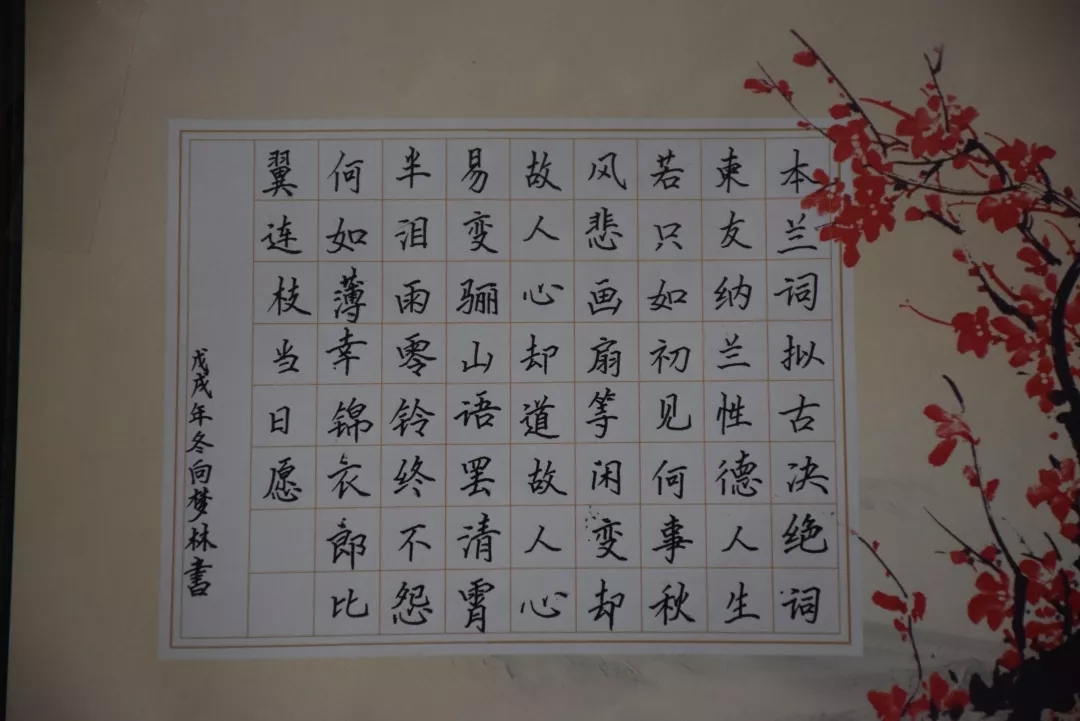 本兰词拟古决绝词
柬友纳兰性德人生
若只如初见何事秋
风悲画扇等闲变却
故人心却道故人心
易变骊山语罢清霄
半泪雨零铃终不怨
何如薄幸锦衣郎比
翼连枝当日愿
戊戌年冬向梦林书